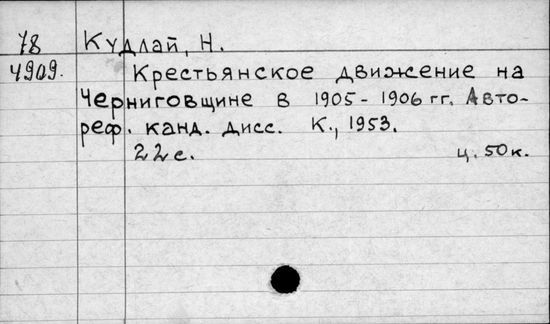 78 Кудлай, Н.
4909. Крестьянское движение на
Черниговщине в 1905-1906 гг. Авто-
реф. канд. дисс. К., 1953.
22 с. ц. 50 к.